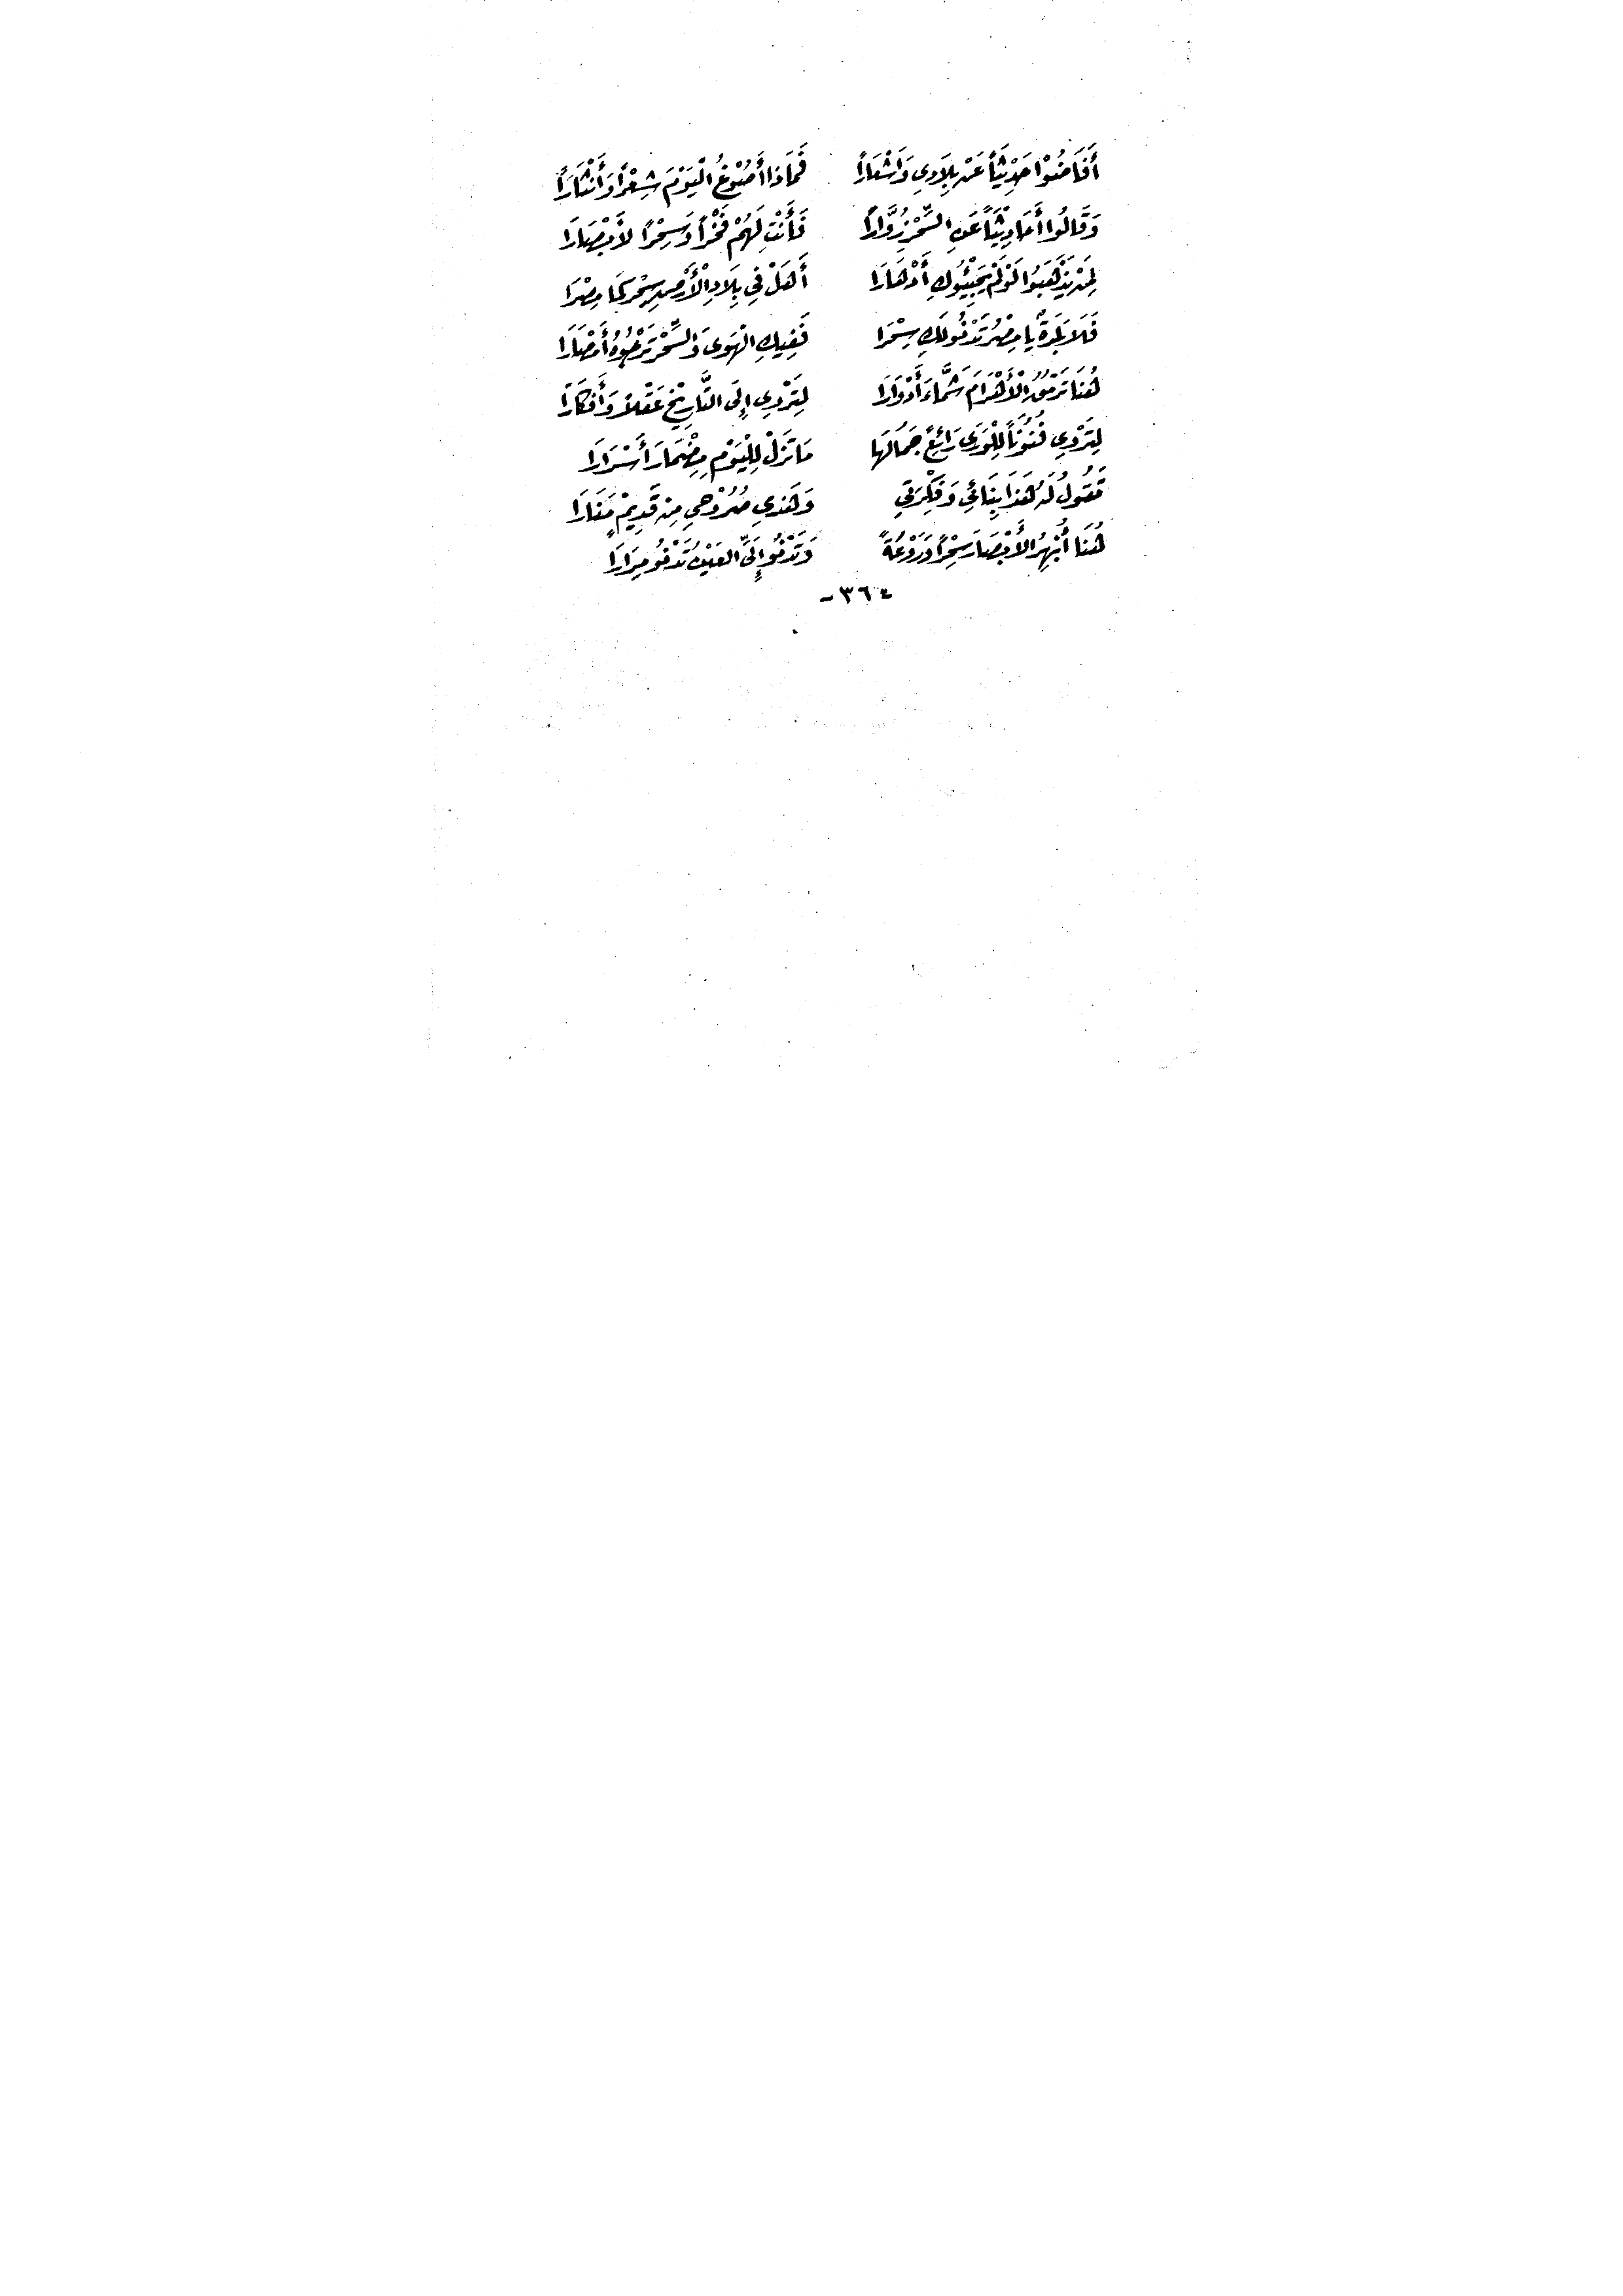 أَفَاضُوْا حَدِيْثَاً عَنْ بِلَادِي وَأَشْعَارَاً فَمَاذَا أَصُوْغُ الْيَوْمَ شِعْرَاً وَأَنْثَارَاً
وَقَالُوا أَحَادِيْثَاً عَنِ السِّحْرِ زُوَّارَاً فَأَنْتِ لَهُمْ فَخْرَاً وَسِحْرَاً لأَبْصَارَا
لِمَنْ يَذْهَبُوا لَوْ لَمْ يَجِيْئُوكِ أَدْهَارَا أَهَلْ فِي بِلَادِ الْأَرْضِ سِحْرٌ كَمَا مِصْرَا
فَلَا بَلْدَةٌ يَا مِصْرُ تَدْنُو لَكِ سِحْرَا فَفِيكِ الْهَوَى وَالسِّحْرُ تَرْجُوهُ أَمْصَارَا
هُنَا تَرْمُقُ الْأَهْرَامَ شَمَّاءَ أَدْوَارَا لِتَرْوِي إِلَى التَّارِيْخِ عَقْلَاً وَأَفْكَارَاً
لِتَرْوِي فُنُوْنَاً لِلْوَرَى رَائِعٌ جَمَالُهَا مَا تَزَلْ لِلْيَوْمِ مِضْمَارَ أَسْرَارَا
تَقُولُ لَهُ هَذَا بِنَائِي وَفِكْرَتِي وَهَذِي صُرُوْحِي مِنْ قَدِيْمٍ مَنَارَا
هُنَا أُبْهِرُ الْأَبْصَارَ سِحْرَاً وَرَوْعَةً وَتَدْنُو إِلَيَّ الْعَيْنُ تَدْنُو مِرَارَا
٣٦٤ -